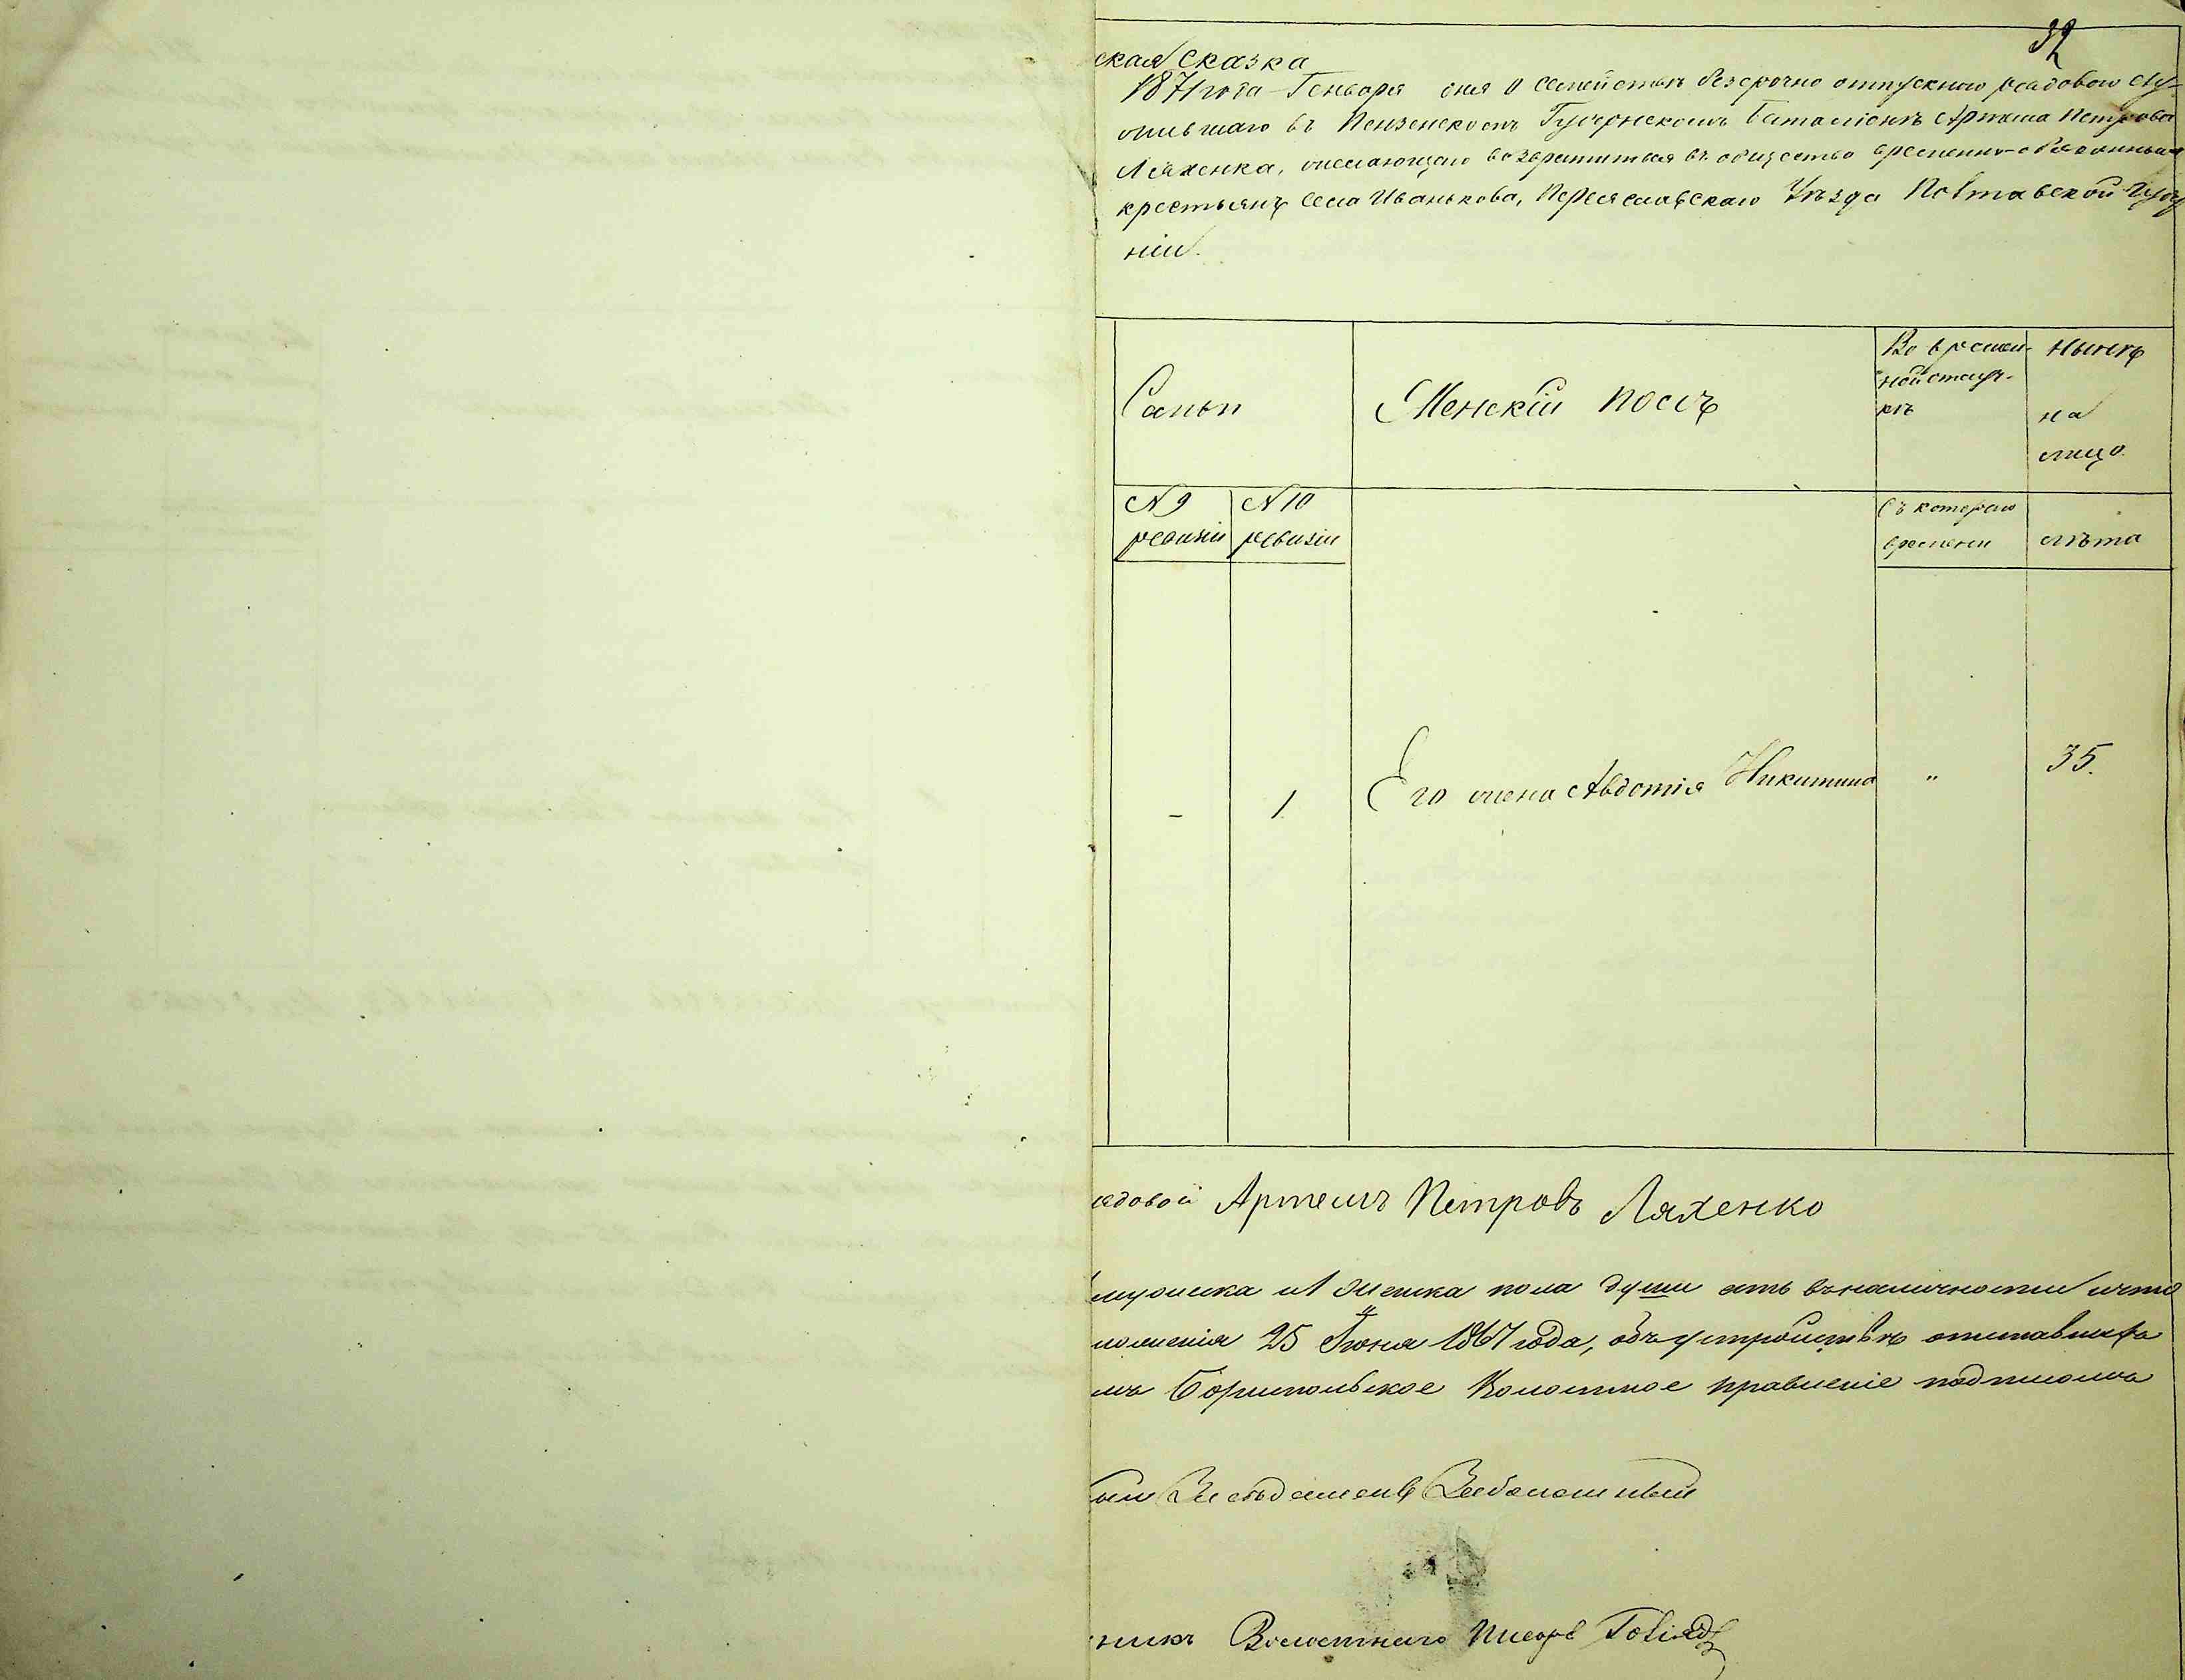 32
ская Сказка
1871 года Генваря дня О семействѣ безсрочно отпускнаго рядоваго слу-
жившаго въ Пензенскомъ Губернскомъ Баталіонѣ Артема Петрова
Ляхенка, желающаго возвратиться въ общество временно-обязанныхъ
крестьянъ села Иванькова, Переяславскаго Уѣзда Полтавской Губер
ніи.
Самьи
Женскій полъ
Во времен-
ной отлуч-
кѣ
Нынѣ
на
лицо
N 9
ревизіи
N 10
ревизіи
Съ котораго
времени
лѣта
-
1
Его жена Авдотія Никитина
"
35.
ядовой Артемъ Петровъ Ляхенко
мужеска и 1 женска пола души есть въ наличности и что
положенія 25 Іюня 1867 года, объ устройствѣ отставныхъ
мъ Бориспольское Волостное правленіе подписомъ
Заболотный
никъ Волостнаго Писаря